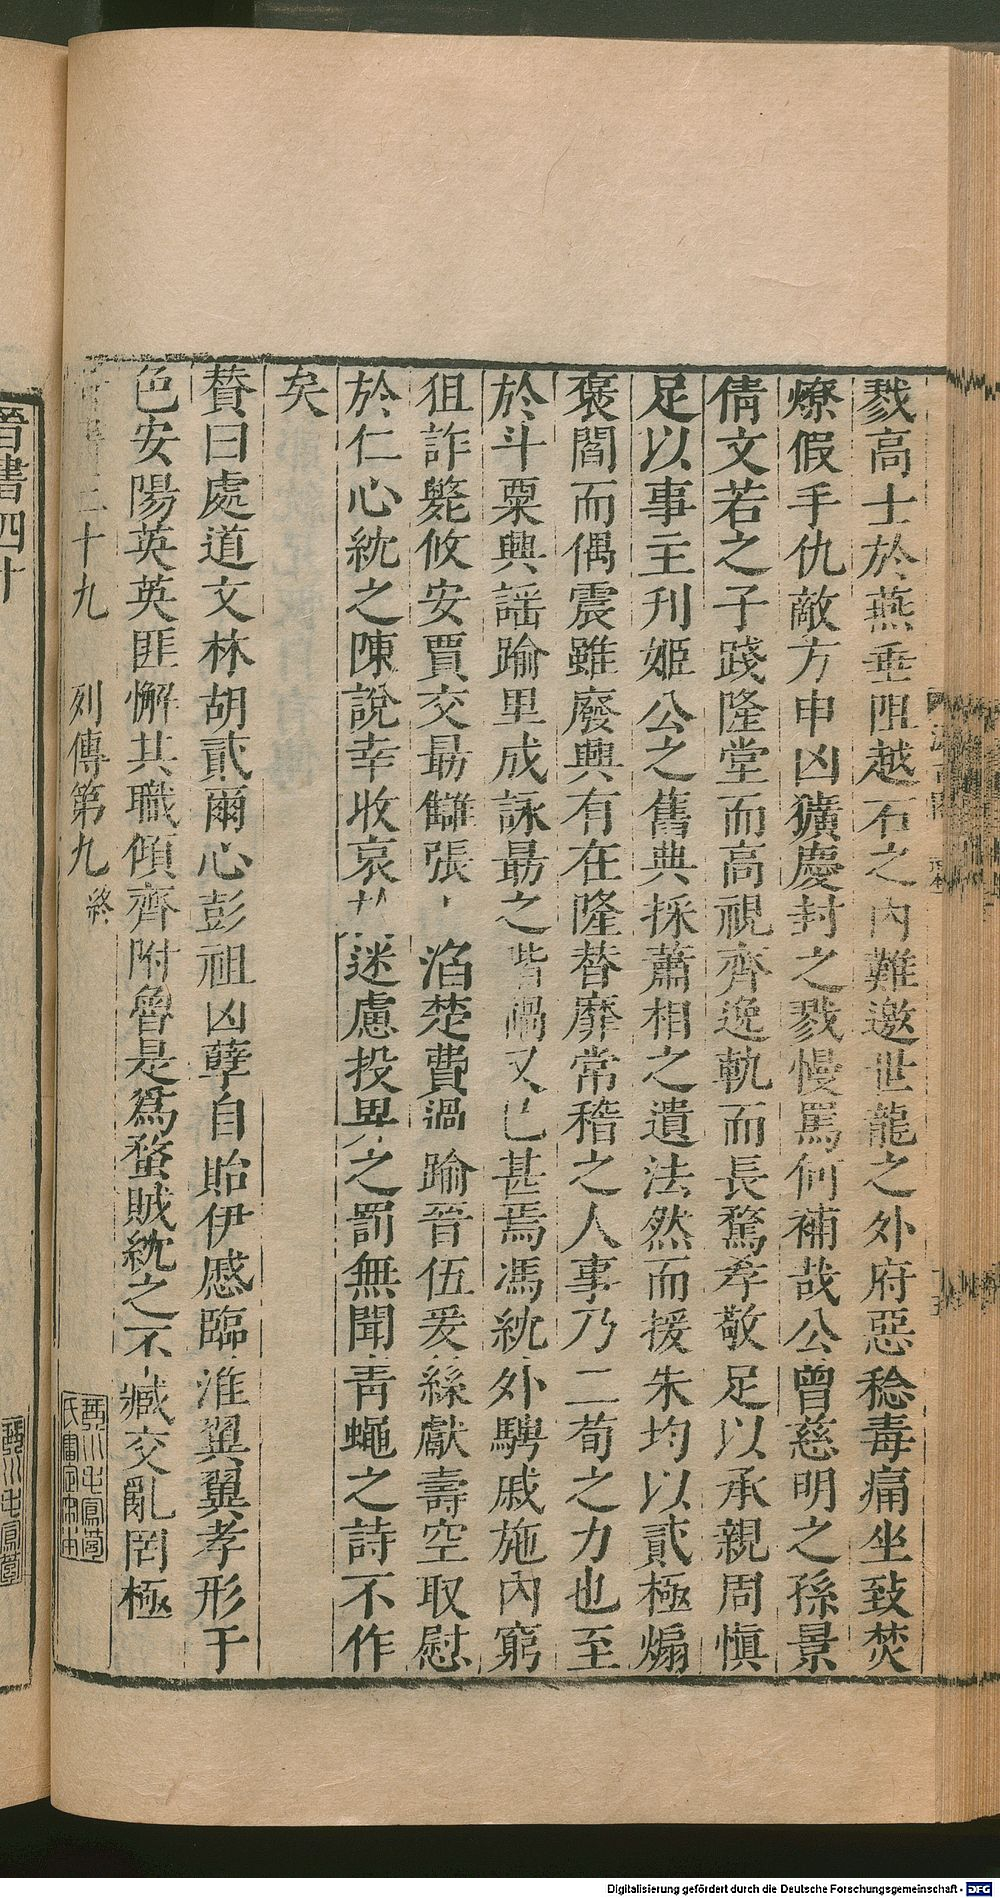 戮高士於燕垂阻越石之內難邀世龍之外府惡稔毒痛坐致焚
燎假手仇敵方申凶獷慶封之戮慢罵何補哉公曾慈明之孫景
倩文若之子踐隆堂而高視齊逸軌而長騖孝敬足以承親周愼
足以事主刊姬公之舊典採蕭相之遺法然而援朱均以貳極煽
褒閻而偶震雖廢興有在隆替靡常稽之人事乃二荀之力也至
於斗粟興謠踰里成詠勗之階禍又已甚焉馮紞外騁戚施內窮
狙詐斃攸安賈交勗讎張 滔楚費過踰晉伍爰絲獻壽空取慰
於仁心紞之陳說幸收哀 迷慮投畀之罰無聞靑蠅之詩不作
矣
贊曰處道文林胡貳爾心彭祖凶孽自貽伊慼臨淮翼翼孝形于
色安陽英英匪懈其職傾齊附魯是爲蝥賊紞之不臧交亂罔極
二十九 列傳第九 終
晉書四十
Digitalisierung gefördert durch die Deutsche Forschungsgemeinschaft - DFG